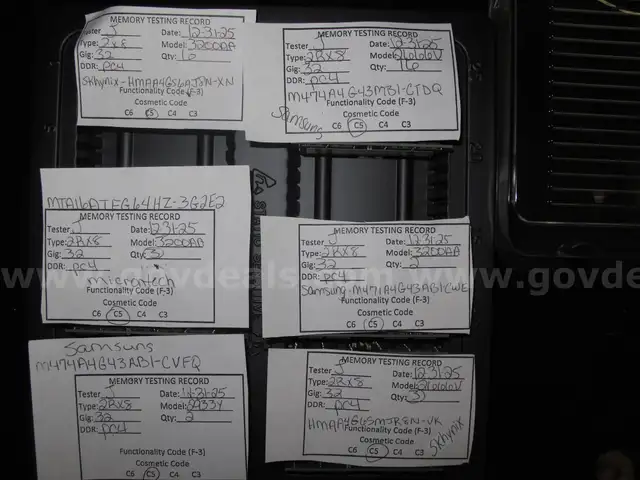 MEMORY TESTING RECORD
Tester J Date: 12-31-25
Type: 2x8 Model: 3200AA
Gig: 32 Qty:
DDR: pc4
SKhynix-HMAA4GS6AJR8N-XN
Functionality Code (F-3)
Cosmetic Code
C6 C5 C4 C3
MEMORY TESTING RECORD
Tester J Date: 12-31-25
Type: 2Rx8 Model: 2666V
Gig: 32 Qty: 16
DDR: pc4
M474A4G43MB1-CTDQ
Samsung
Functionality Code (F-3)
Cosmetic Code
C6 C5 C4 C3
MTA16ATF4G64HZ-3G2E2
MEMORY TESTING RECORD
Tester J Date: 12-31-25
Type: 2Rx8 Model: 3200AB
Gig: 32 Qty: 3
DDR: pc4
microntech
Functionality Code (F-3)
Cosmetic Code
C6 C5 C4 C3
MEMORY TESTING RECORD
Tester J Date: 12-31-25
Type: 2Rx8 Model: 3200AA
Gig: 32 Qty: 2
DDR: pc4
Samsung-M471A4G43AB1-CWE
Functionality Code (F-3)
Cosmetic Code
C6 C5 C4 C3
www.govdeals.com
www.govdeals
Samsung
M474A4G43AB1-CVFQ
MEMORY TESTING RECORD
Tester J Date: 12-31-25
Type: 2Rx8 Model:
Gig: 32 Qty: 2
DDR: pc4
Functionality Code (F-3)
Cosmetic Code
C6 C5 C4 C3
MEMORY TESTING RECORD
Tester J Date: 12-31-25
Type: 2Rx8 Model: 2666V
Gig: 32 Qty: 3
DDR: pc4
HMAA4GS6MJR8N-VK
Functionality Code (F-3)
SKhynix
Cosmetic Code
C6 C5 C4 C3